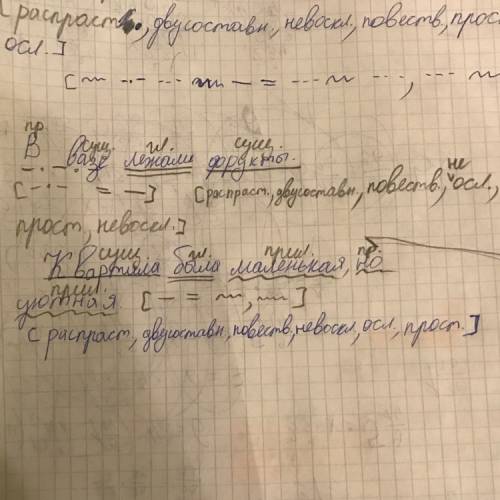 [распраст., двусоставн, невоскл, повеств, прос
осл.]
пр.
сущ. гл. сущ.
В вазе лежали форукты.
не
[распраст., двусоставн, повеств, осл,
прост, невоскл.]
сущ. гл. прил. пр.
Квартяла была маленькая, но
прил.
уютная.
[распраст, двусоставн, повеств, невоскл, осл, прост.]